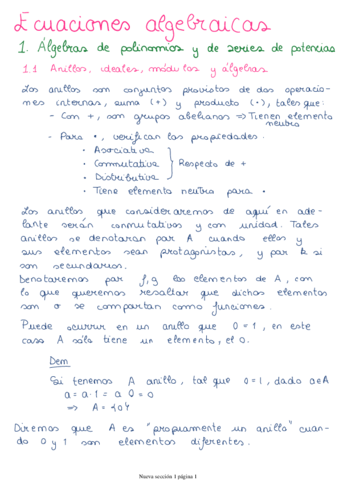 Ecuaciones algebraicas
1. Álgebras de polinomios y de series de potencias
1.1 Anillos, ideales, módulos y álgebras
Los anillos son conjuntos provistos de dos operacio-
nes internas, suma (+) y producto (·), tales que:
- Con +, son grupos abelianos ⇒ Tienen elemento
neutro
- Para ·, verifican las propiedades:
• Asociativa
• Conmutativa } Respecto de +
• Distributiva
• Tiene elemento neutro para ·
Los anillos que consideraremos de aquí en ade-
lante serán conmutativos y con unidad. Tales
anillos se denotarán por A cuando ellos y
sus elementos sean protagonistas, y por k si
son secundarios.
Denotaremos por f, g los elementos de A, con
lo que queremos resaltar que dichos elementos
son o se comportan como funciones.
Puede ocurrir en un anillo que 0=1, en este
caso A sólo tiene un elemento, el 0.
Dem
Si tenemos A anillo, tal que 0=1, dado a∈A
a = a·1 = a·0 = 0
⇒ A = {0}
Diremos que A es "propiamente un anillo" cuan-
do 0 y 1 son elementos diferentes.
Nueva sección 1 página 1